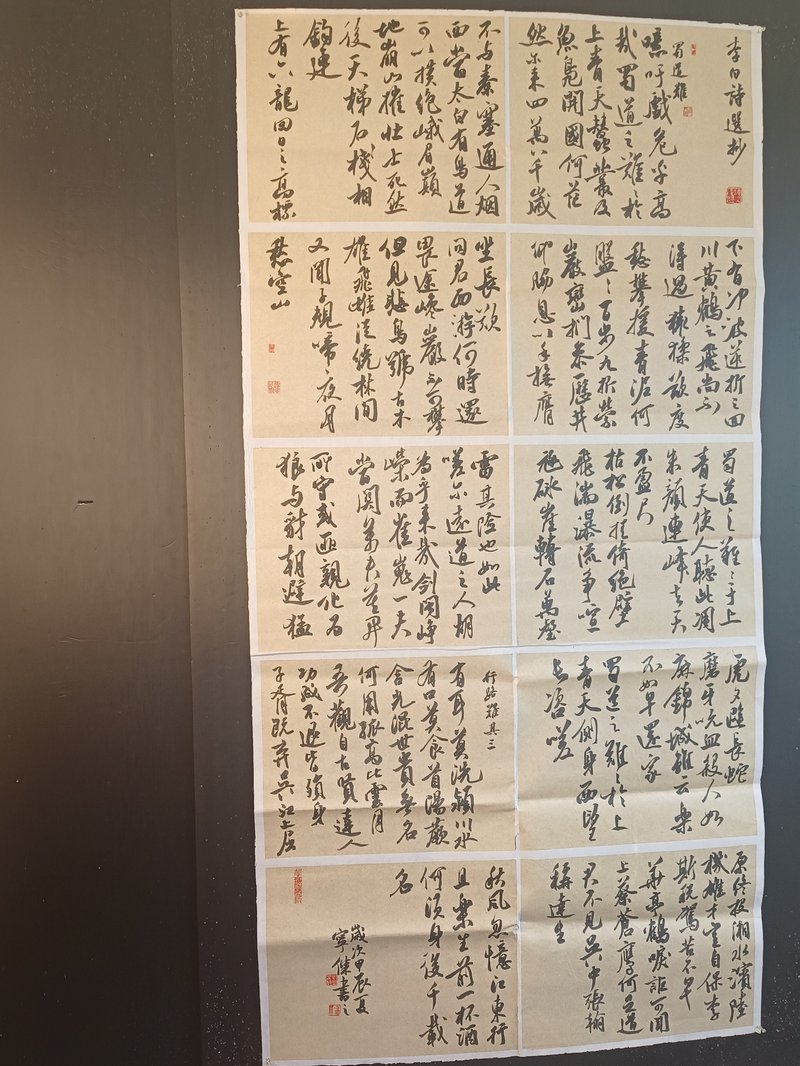 李白詩選抄
蜀道難
噫吁戲危乎高
哉蜀道之難難於
上青天蠶叢及
魚鳧開國何茫
然尔来四萬八千歲
不与秦塞通人烟
西當太白有鳥道
可以橫絕峨眉巔
地崩山摧壮士死然
後天梯石棧相
鈎連
上有六龍回日之高標
下有沖波逆折之回
川黃鶴之飛尚不
得過猿猱欲度
愁攀援青泥何
盤盤百步九折縈
巖巒捫参歷井
仰脅息以手撫膺
坐長歎
问君西游何時還
畏途巉巖不可攀
但見悲鳥號古木
雄飛雌從繞林间
又聞子規啼夜月
愁空山
蜀道之難難于上
青天使人聽此凋
朱顏連峰去天
不盈尺
枯松倒挂倚絕壁
飛湍瀑流爭喧
豗砯崖轉石萬壑
雷其險也如此
嗟尔遠道之人胡
為乎来哉劍閣崢
嶸而崔嵬一夫
當関萬夫莫開
所守或匪親化為
狼与豺朝避猛
虎夕避長蛇
磨牙吮血殺人如
麻錦城雖云樂
不如早還家
蜀道之難難於上
青天側身西望
長咨嗟
行路難其三
有耳莫洗潁川水
有口莫食首陽蕨
含光混世貴無名
何用孤高比雲月
吾觀自古賢達人
功成不退皆殞身
子胥既棄吳江上屈
原終投湘水濱陸
機雄才豈自保李
斯税駕苦不早
華亭鶴唳詎可聞
上蔡蒼鷹何足道
君不見吳中張翰
稱達生
秋風忽憶江東行
且樂生前一杯酒
何須身後千載
名
歲次甲辰夏
寧傑書之